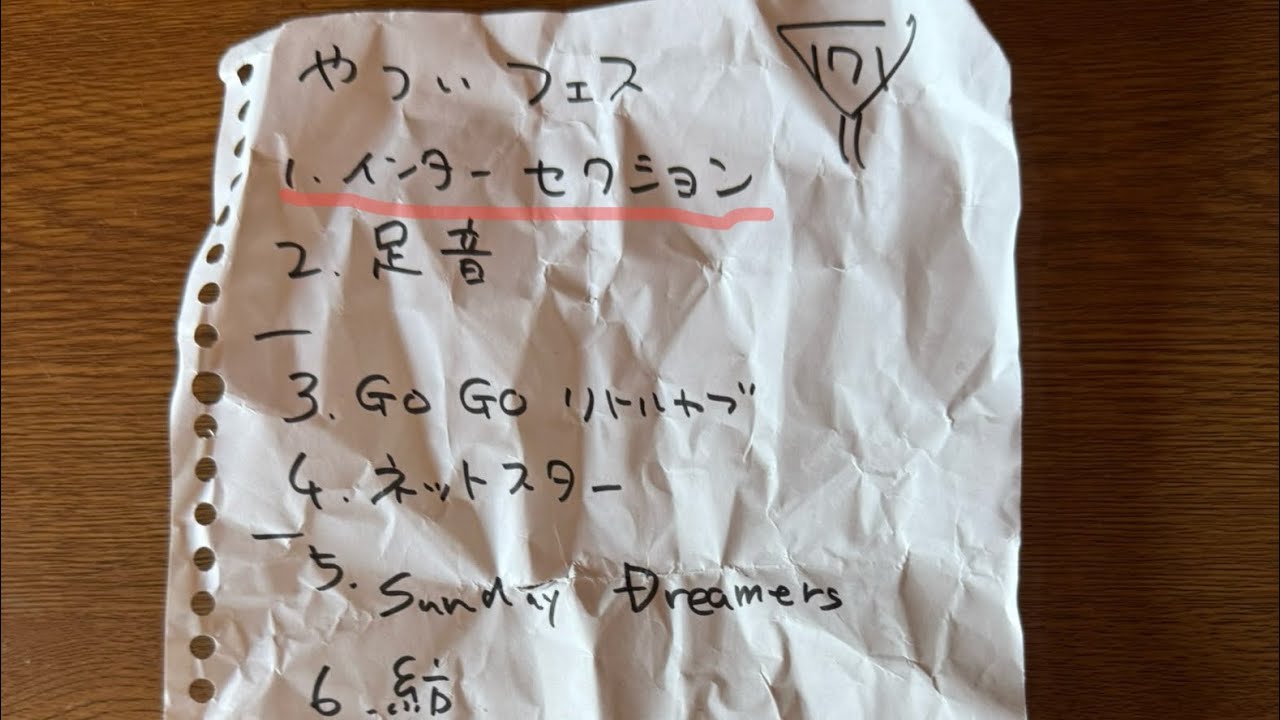 やついフェス
171
1. インターセクション
2. 足音
3. GO GO リトルカブ
4. ネットスター
5. Sunday Dreamers
6. 結